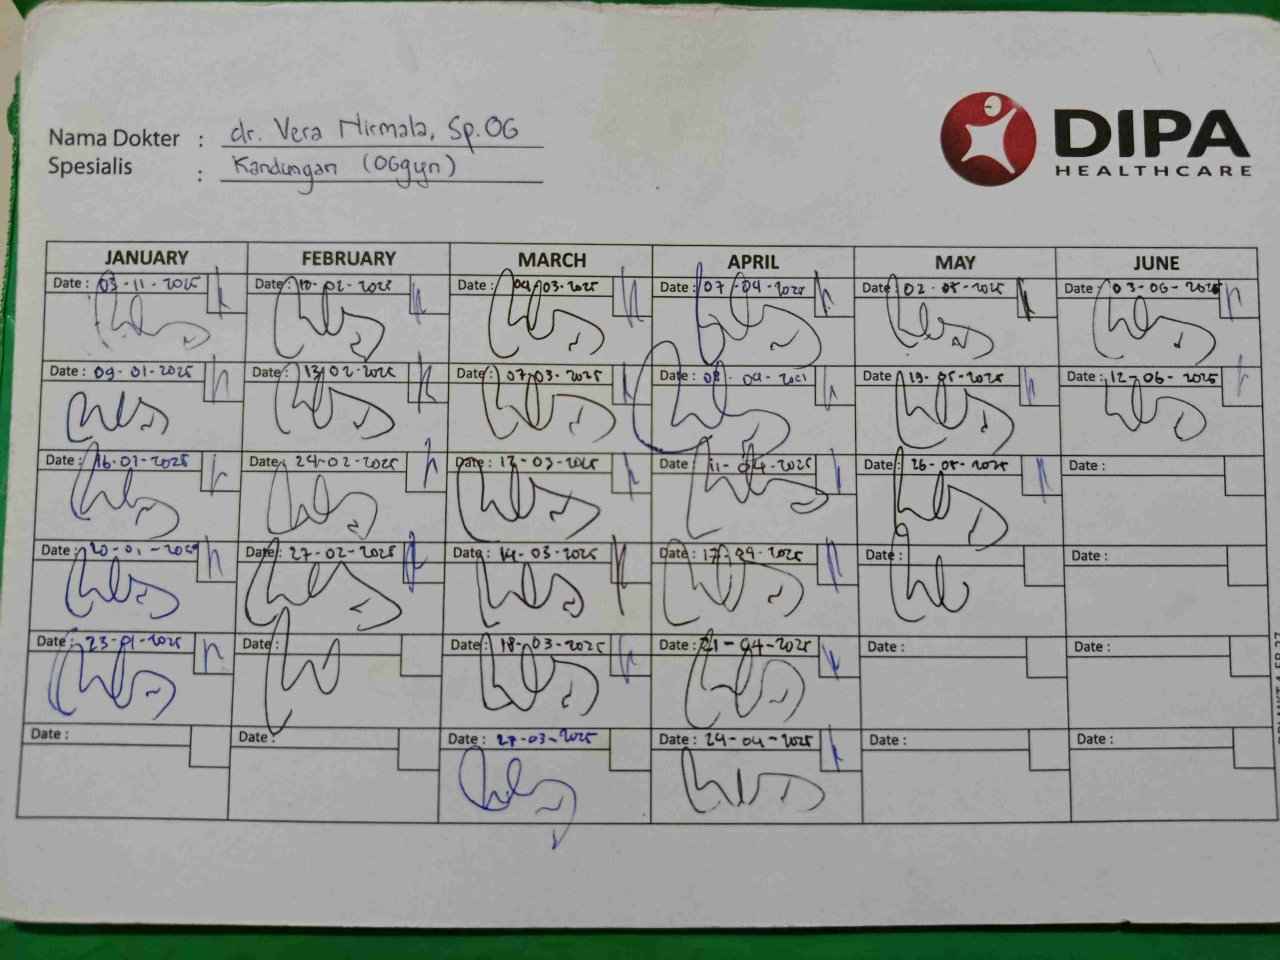 Nama Dokter : dr. Vera Nirmala, Sp.OG
Spesialis : Kandungan (OGgyn)
DIPA
HEALTHCARE
JANUARY FEBRUARY MARCH APRIL MAY JUNE
Date : 03-11-2025 Date : 10-02-2025 Date : 04-03-2025 Date : 07-04-2025 Date : 02-05-2025 Date : 03-06-2025
Date : 09-01-2025 Date : 13-02-2025 Date : 07-03-2025 Date : 08-04-2021 Date : 19-05-2025 Date : 12-06-2025
Date : 16-01-2025 Date : 24-02-2025 Date : 12-03-2025 Date : 11-04-2025 Date : 26-05-2025 Date :
Date : 20-01-2025 Date : 27-02-2025 Date : 14-03-2025 Date : 17-04-2025 Date : Date :
Date : 23-01-2025 Date : Date : 18-03-2025 Date : 21-04-2025 Date : Date :
Date : Date : Date : 27-03-2025 Date : 24-04-2025 Date : Date :